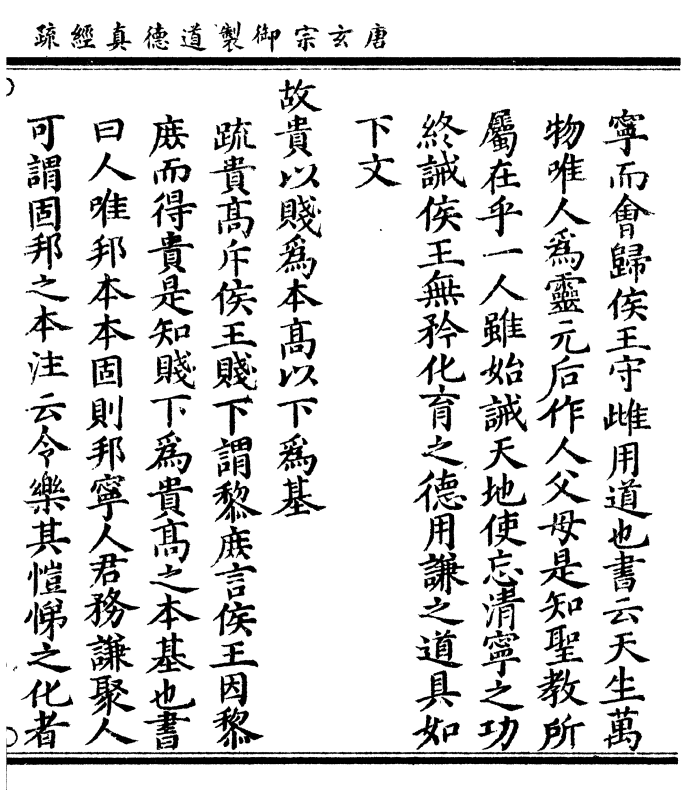 唐玄宗御製道德真經疏
寧而會歸侯王守雌用道也書云天生萬
物唯人爲靈元后作人父母是知聖教所
屬在乎一人雖始誡天地使忘清寧之功
終誡侯王無矜化育之德用謙之道具如
下文
故貴以賤爲本高以下爲基
疏貴高斥侯王賤下謂黎庶言侯王因黎
庶而得貴是知賤下爲貴高之本基也書
曰人唯邦本本固則邦寧人君務謙聚人
可謂固邦之本注云令樂其愷悌之化者